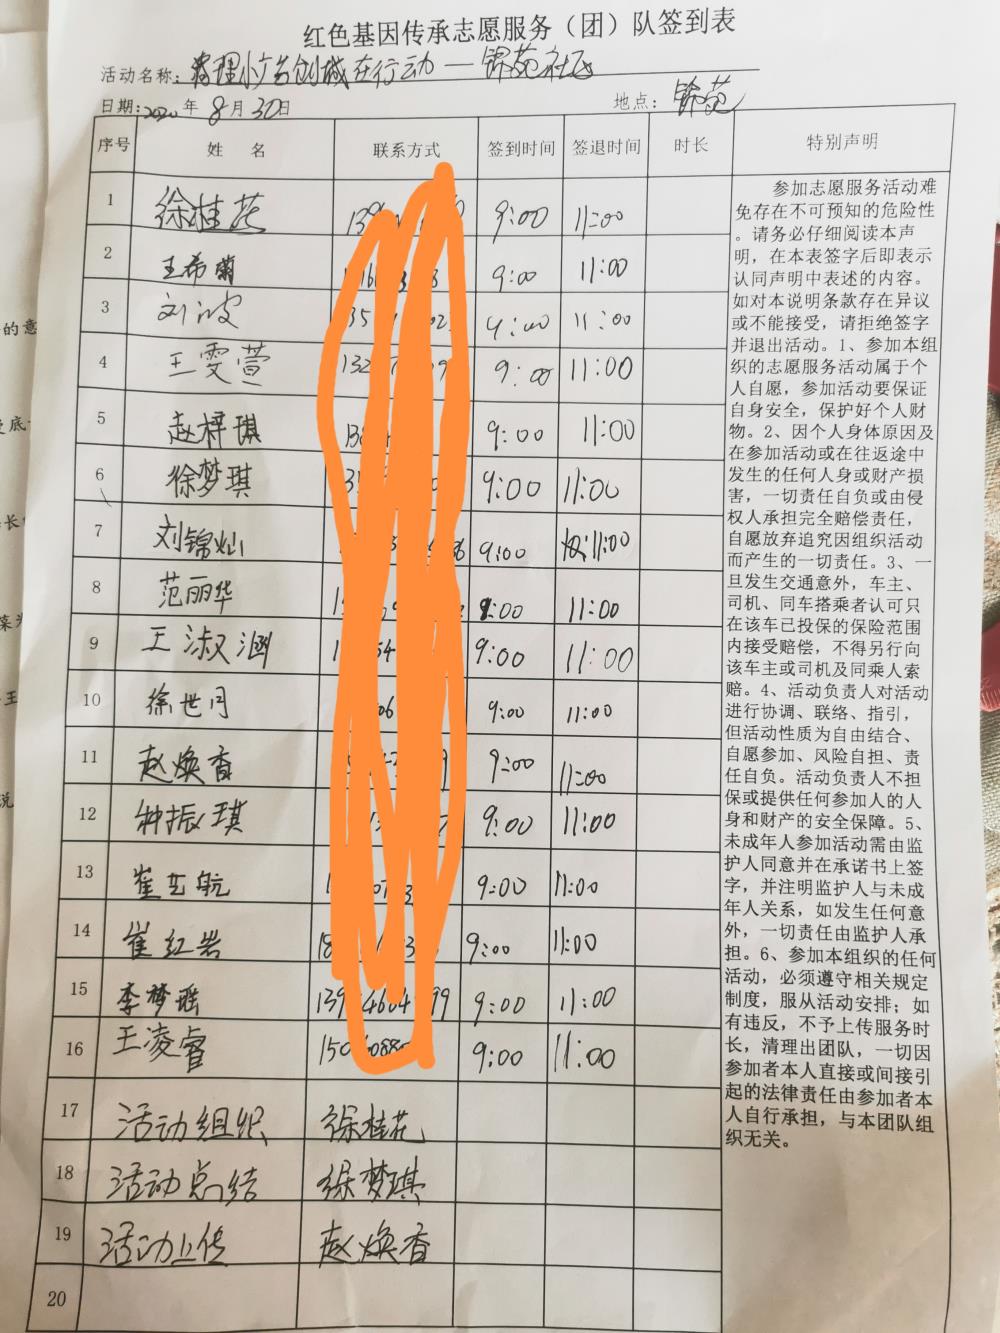 红色基因传承志愿服务（团）队签到表
活动名称：清理小广告创城在行动一锦苑社区
日期：2020年8月30日 地点：锦苑
序号 姓名 联系方式 签到时间 签退时间 时长 特别声明
1 徐桂花 9:00 11:00
2 王希菊 9:00 11:00
3 刘波 9:00 11:00
4 王雯萱 9:00 11:00
5 赵梓琪 9:00 11:00
6 徐梦琪 9:00 11:00
7 刘锦灿 9:00 11:00
8 范丽华 9:00 11:00
9 王淑涵 9:00 11:00
10 徐世月 9:00 11:00
11 赵焕香 9:00 11:00
12 钟振琪 9:00 11:00
13 崔艺航 9:00 11:00
14 崔红岩 9:00 11:00
15 李梦瑶 9:00 11:00
16 王凌睿 9:00 11:00
17 活动组织 徐桂花
18 活动总结 徐梦琪
19 活动上传 赵焕香
20
参加志愿服务活动难
免存在不可预知的危险性
。请务必仔细阅读本声
明，在本表签字后即表示
认同声明中表述的内容。
如对本说明条款存在异议
或不能接受，请拒绝签字
并退出活动。1、参加本组
织的志愿服务活动属于个
人自愿，参加活动要保证
自身安全，保护好个人财
物。2、因个人身体原因及
在参加活动或在往返途中
发生的任何人身或财产损
害，一切责任自负或由侵
权人承担完全赔偿责任，
自愿放弃追究因组织活动
而产生的一切责任。3、一
旦发生交通意外，车主、
司机、同车搭乘者认可只
在该车已投保的保险范围
内接受赔偿，不得另行向
该车主或司机及同乘人索
赔。4、活动负责人对活动
进行协调、联络、指引，
但活动性质为自由结合、
自愿参加、风险自担、责
任自负。活动负责人不担
保或提供任何参加人的人
身和财产的安全保障。5、
未成年人参加活动需由监
护人同意并在承诺书上签
字，并注明监护人与未成
年人关系，如发生任何意
外，一切责任由监护人承
担。6、参加本组织的任何
活动，必须遵守相关规定
制度，服从活动安排；如
有违反，不予上传服务时
长，清理出团队，一切因
参加者本人直接或间接引
起的法律责任由参加者本
人自行承担，与本团队组
织无关。